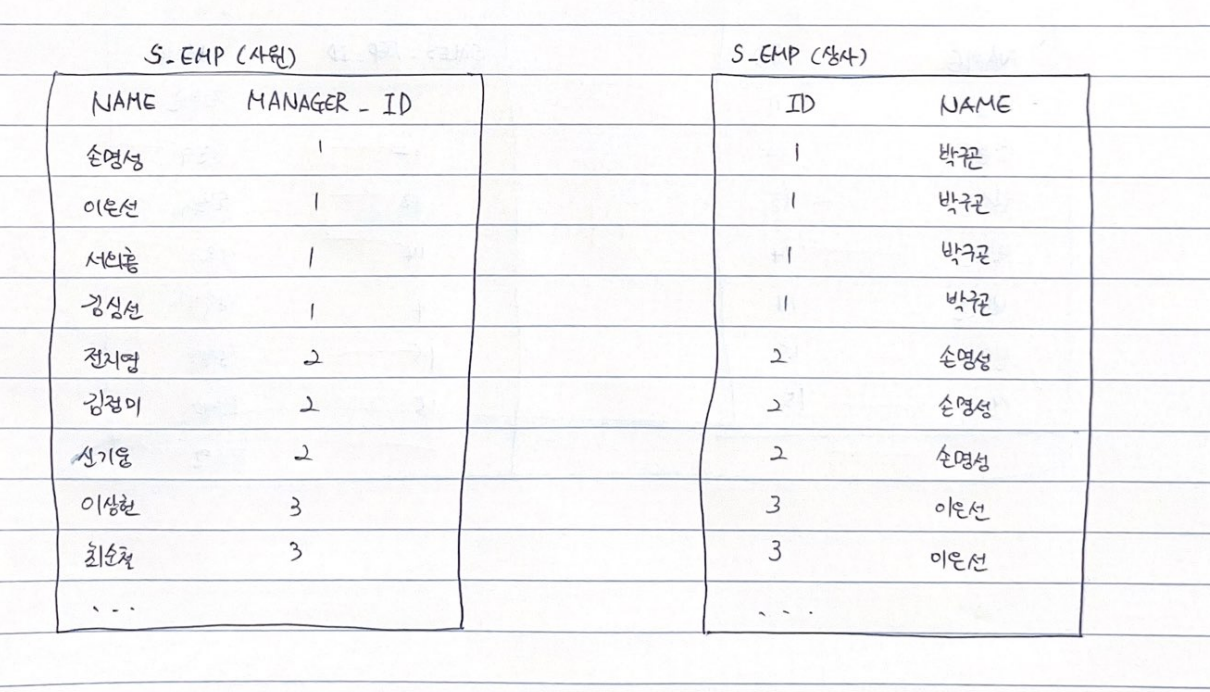 S_EMP (사원)
NAME MANAGER_ID
손명성 1
이은선 1
서의홍 1
김심선 1
전지영 2
김정미 2
신기웅 2
이상헌 3
최순철 3
...
S_EMP (상사)
ID NAME
1 박구곤
1 박구곤
1 박구곤
1 박구곤
2 손명성
2 손명성
2 손명성
3 이은선
3 이은선
....